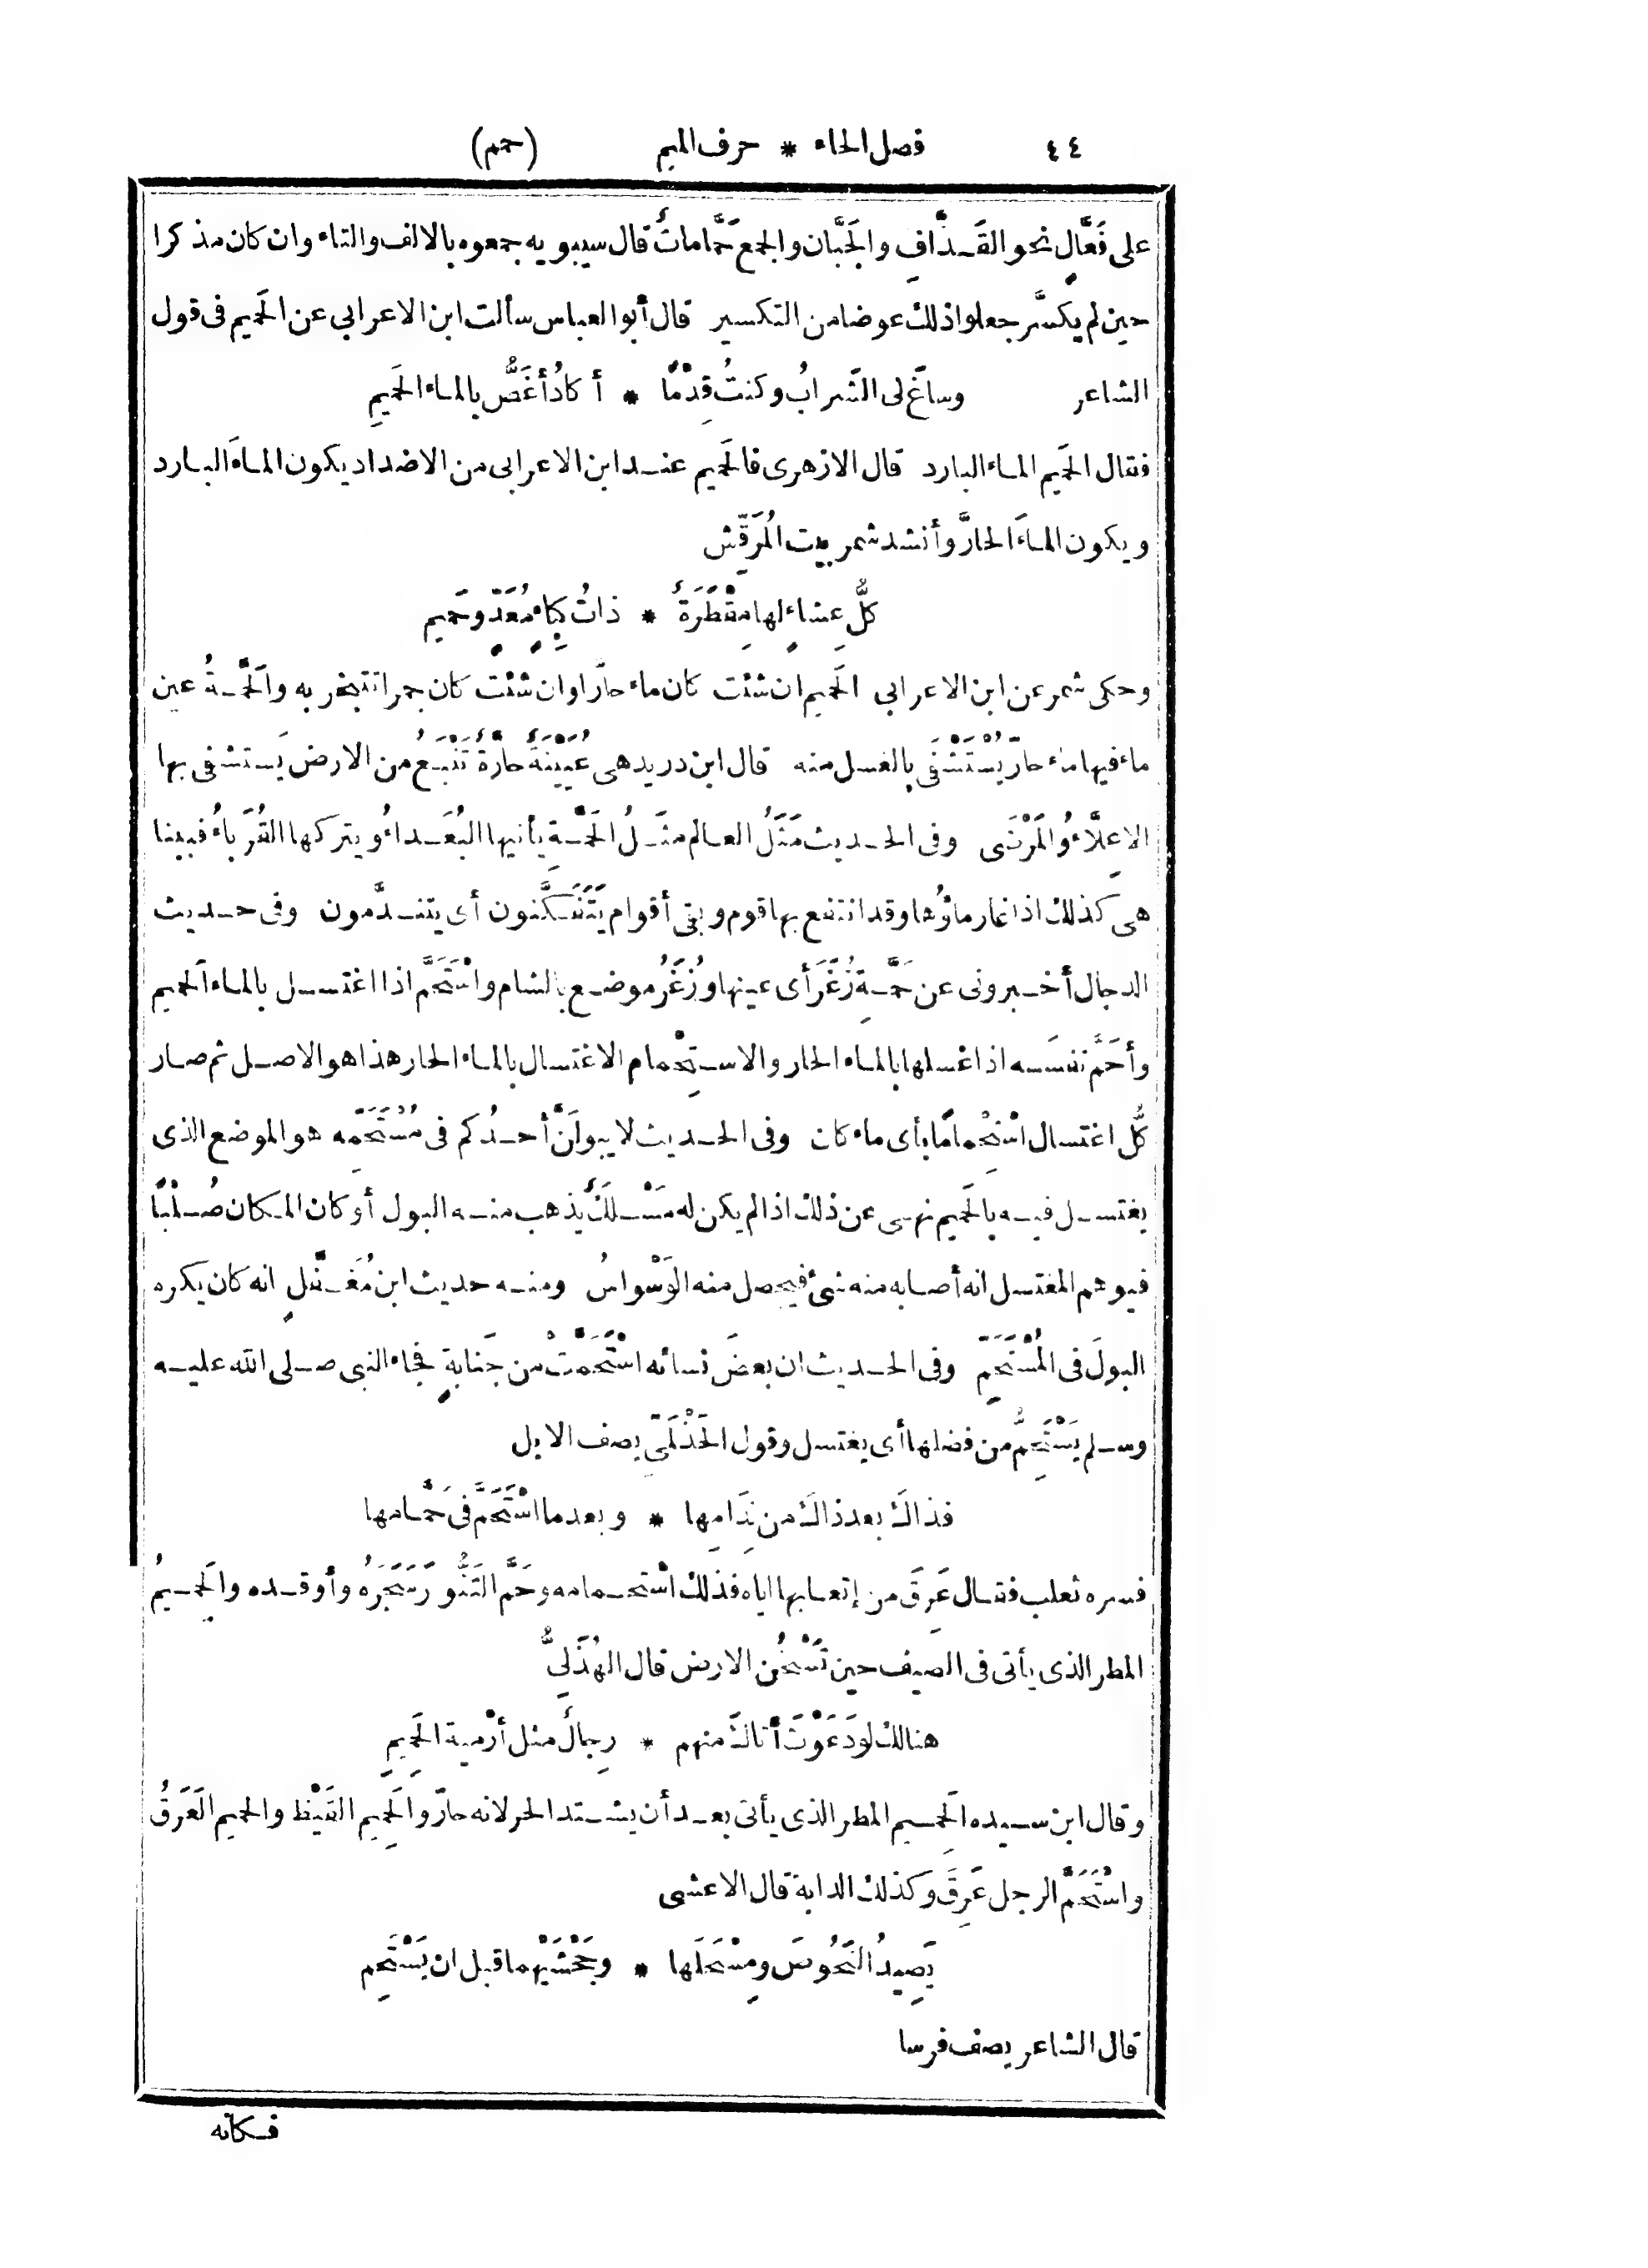 ٤٤ فصل الحاء * حرف الميم (حمم)
على فَعَّالٍ نحو القَذَّافِ والجَبَّان والجمع حَمَّاماتٌ قال سيبويه جمعوه بالالف والتاء وان كان مذكرا
حين لم يكسَّر جعلوا ذلك عوضا من التكسير قال أبو العباس سألت ابن الاعرابي عن الحَميم فى قول
الشاعر وساغَ لى الشَّرابُ وكنتُ قِدْمًا * أكادُ أغَصُّ بالماء الحَميمِ
فقال الحَميم الماء البارد قال الازهرى فالحَميم عند ابن الاعرابى من الاضداد يكون الماءَ البارد
ويكون الماءَ الحارَّ وأنشد شمر بيت المُرَقِّش
كلُّ عشاءٍ لها مِقْطَرَةٌ * ذاتُ كِباءٍ مُعَدٍّ وحَميم
وحكى شمر عن ابن الاعرابي الحَميم ان شئت كان ماء حارّا وان شئت كان جمرا تتبخر به والحَمَّةُ عين
ماء فيها ماء حارّ يُسْتَشْفَى بالغسل منه قال ابن دريد هى عُيَيْنَةٌ حارةٌ تَنْبَعُ من الارض يَستشفى بها
الاعِلَّاءُ والمَرْضَى وفى الحديث مَثَلُ العالم مثَلُ الحَمَّةِ يأتيها البُعَداءُ ويتركها القُرَباءُ فبينا
هى كذلك اذا غار ماؤُها وقد انتفع بها قوم وبقى أقوام يَتَفَكَّنون أى يتندَّمون وفى حديث
الدجال أخبرونى عن حَمَّةِ زُغَرَ أى عينها وزُغَرُ موضع بالشام واسْتَحَمَّ اذا اغتسل بالماء الحَميم
وأحَمَّ نفسَه اذا غسلها بالماء الحار والاستِحْمام الاغتسال بالماء الحار هذا هو الاصل ثم صار
كلُّ اغتسال اسْتِحْمامًا بأى ماء كان وفى الحديث لا يبولَنَّ أحدُكم فى مُسْتَحَمِّه هو الموضع الذى
يغتسل فيه بالحَميم نهى عن ذلك اذا لم يكن له مَسْلَكٌ يذهب منه البول أو كان المكان صُلْبًا
فيوهم المغتسل انه أصابه منه شئ فيحصل منه الوَسْواسُ ومنه حديث ابن مُغَفَّلٍ انه كان يكره
البولَ فى المُسْتَحَمِّ وفى الحديث ان بعضَ نسائه اسْتَحَمَّتْ من جَنابةٍ فجاء النبى صلى الله عليه
وسلم يَسْتَحِمُّ من فضلها أى يغتسل وقول الحَذْلَمِىِّ يصف الابل
فذاكَ بعد ذاكَ من نِدَامِها * وبعد ما اسْتَحَمَّ فى حَمَّامها
فسره ثعلب فقال عَرِقَ من إتعابها اياه فذلك اسْتحمامه وحَمَّ التَّنُّورَ سَجَرَهُ وأوقده والحَمِيمُ
المطر الذى يأتى فى الصيف حين تَسْخُن الارض قال الهُذَلِىُّ
هنالك لو دَعَوْتَ أتاكَ منهم * رِجالٌ مثل أرْمِية الحَمِيمِ
وقال ابن سيده الحَمِيم المطر الذى يأتى بعد أن يشتد الحر لانه حارّ والحَمِيم القَيْظ والحميم العَرَقُ
واسْتَحَمَّ الرجل عَرِقَ وكذلك الدابة قال الاعشى
يَصِيدُ النَّحُوصَ ومِسْحَلَها * وجَحْشَيْهما قبل ان يَسْتَحِم
قال الشاعر يصف فرسا
فكأنه